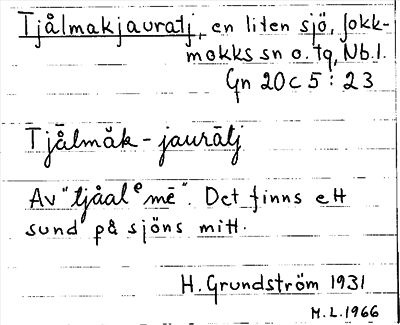 Tjålmakjauratj, en liten sjö, Jokk-
mokks sn o. tq, Nb.l.
Gn 20 C 5 : 23
Tjålmåk - jaurātj
Av "tjåalᵉmē". Det finns ett
sund på sjöns mitt.
H. Grundström 1931
M.L. 1966